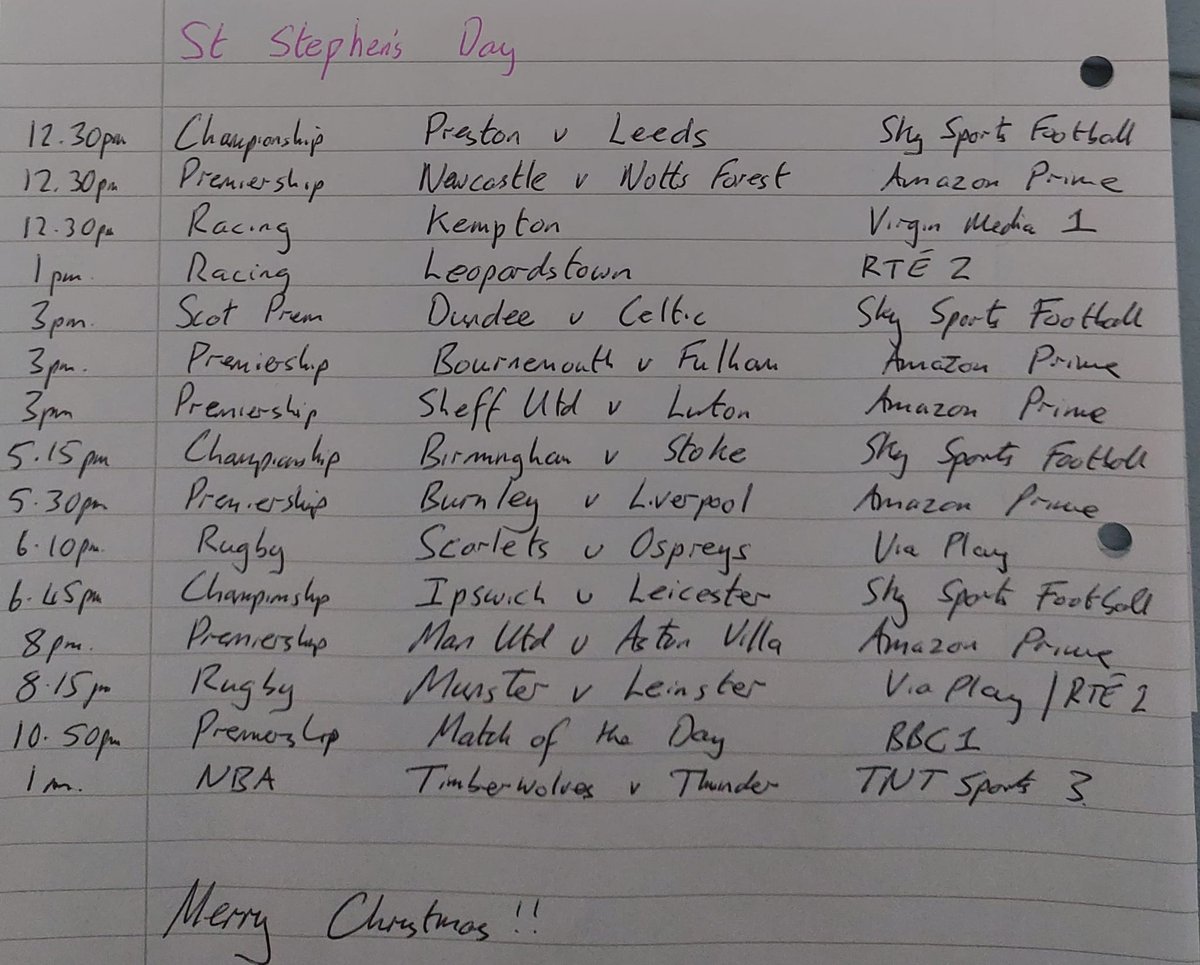 St Stephen's Day
12.30pm Championship Preston v Leeds Sky Sports Football
12.30pm Premiership Newcastle v Notts Forest Amazon Prime
12.30pm Racing Kempton Virgin Media 1
1pm. Racing Leopardstown RTÉ 2
3pm. Scot Prem Dundee v Celtic Sky Sports Football
3pm. Premiership Bournemouth v Fulham Amazon Prime
3pm Premiership Sheff Utd v Luton Amazon Prime
5.15pm Championship Birmingham v Stoke Sky Sports Football
5.30pm Premiership Burnley v Liverpool Amazon Prime
6.10pm. Rugby Scarlets v Ospreys Via Play
6.45pm Championship Ipswich v Leicester Sky Sports Football
8pm. Premiership Man Utd v Aston Villa Amazon Prime
8.15pm Rugby Munster v Leinster Via Play / RTÉ 2
10.50pm Premiership Match of the Day BBC 1
NBA Timberwolves v Thunder TNT Sports 3
Merry Christmas!!